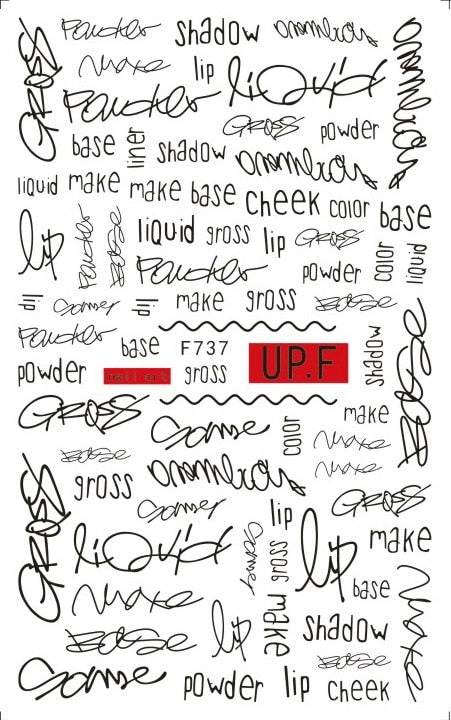 Powder shadow
make lip liquid
Powder GROSS powder
GROSS
base liner shadow
liquid make make base cheek color base
lip Powder Base liquid gross lip GROSS
Powder powder color liquid
lip lip make gross Base
Powder base F737 UP.F shadow
powder nail art gross
GROSS make
color make
Base make
gross
GROSS
lip
GROSS liquid gross lip make
make base
lip make shadow make
Base Base
powder lip cheek